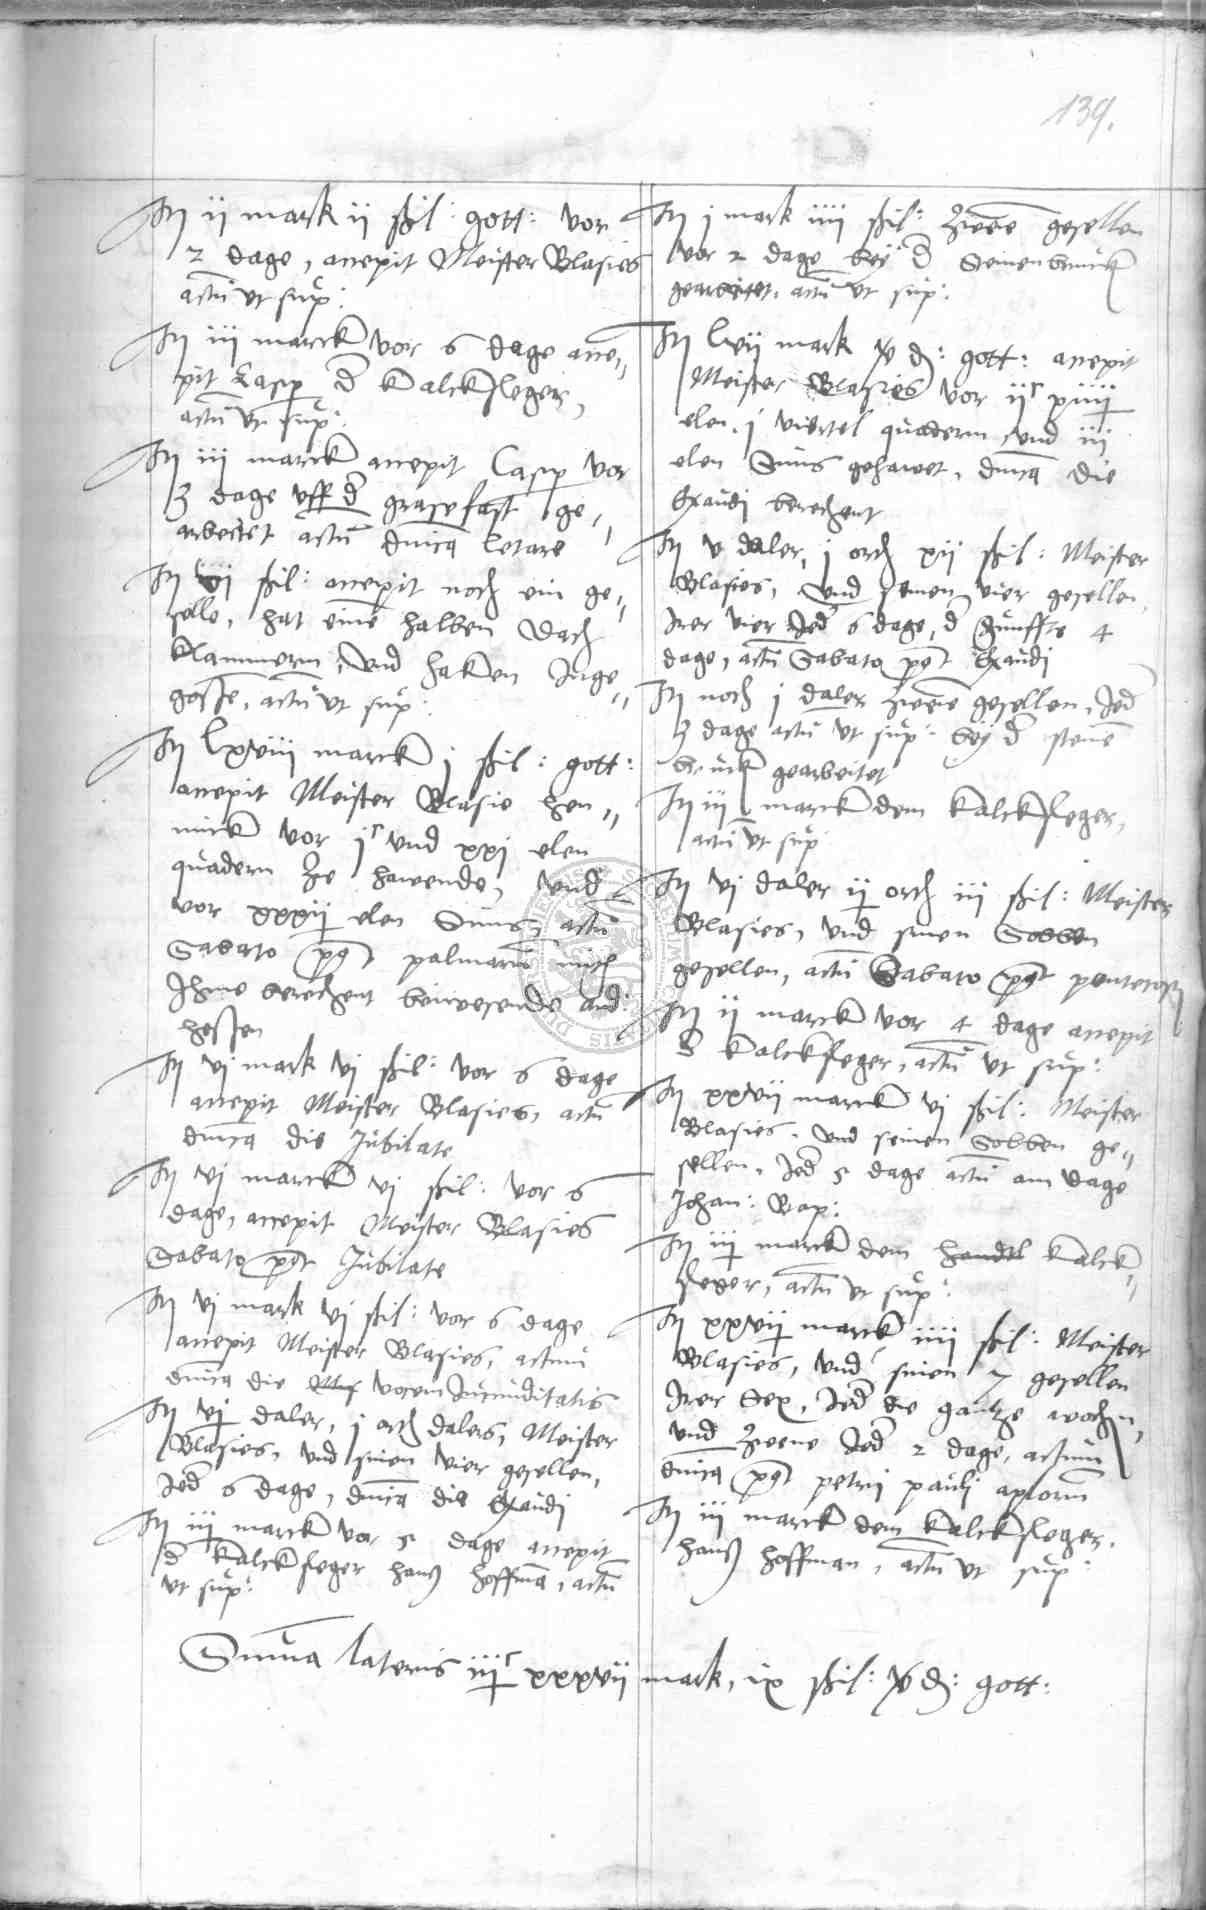 139.
Itz ii mark ii ßil: gott: vor
2 dage, accepit Meister Blasies
actu ut sup:
Itz iii marck vor 6 dage acce„
pit Casp d kalckfleger,
actu ut sup:
Itz iii marck accepit Casp vor
3 dage uff d grasefast ge„
arbeitet actu dnica letare
Itz vi ßil: accepit noch ein ge„
selle, hat eine halben dach
klammern, und haken Inge„
gosse, actu ut sup:
Itz lxviii marck j ßil: gott:
accepit Meister Blasie hen„
nick vor jc und xxj elen
quadern ze hawende, und
vor xxxii elen Sims, actu
Sabato post palmaru mith
Ihme berechent beiwesende and:
hessen
Itz vj mark vj ßil: vor 6 dage
accepit Meister Blasies, actu
dnica die Jubilate
Itz vj marck vj ßil: vor 6
dage, accepit Meister Blasies
Sabato post Jubilate
Itz vj mark vj ßil: vor 6 dage
accepit Meister Blasies, actum
dnica die vocem Jucunditatis
Itz vj daler, j orth dalers, Meister
Blasies, und sinen vier gesellen,
Jed 6 dage, dnica die Exaudi
Itz iii marck vor 5 dage accepit
d kalckfleger hans hoffma, actu
ut sup:
Itz j mark iiii ßil: zwene gesellen
vor 2 dage bey d Steinenbruck
gearbeitet, actu ut sup:
Itz lvii mark v d: gott: accepit
Meister Blasies vor iic xiiii
elen, j viertel quadern und iii
elen Sims gehawet, dnica die
Exaudi berechent
Itz v daler, j orth xii ßil: Meister
Blasies, und seinen vier gesellen,
Irer vier Jed 6 dage, d funffte 4
dage, actu Sabato post Exaudi
Itz noch j daler zwene gesellen, Jed
3 dage actu ut sup: bey d steine
bruck gearbeitet
Itz iii marck dem kalckfleger,
actu ut sup
Itz vj daler ii orth iii ßil: Meister
Blasies, und sinen Sobben
gesellen, actu Sabato post pentecosten
Itz ii marck vor 4 dage accepit
d kalckfleger, actu ut sup:
Itz xxvii marck vj ßil: Meister
Blasies, und seinen Sobben ge„
sellen, Jed 5 dage actu am dage
Johan: Bap:
Itz iii marck dem handtl kalck„
fleger, actu ut sup:
Itz xxvii marck iiii ßil: Meister
Blasies, und sinen 7 gesellen
Irer Sex, Jed die gantze wochen,
und zweene Jed 2 dage, actum
dnica post petri pauli aplorum
Itz iii marck dem kalckfleger,
hans hoffman, actu ut sup:
Suma lateris iiic xxxvii mark, ix ßil: v d: gott: